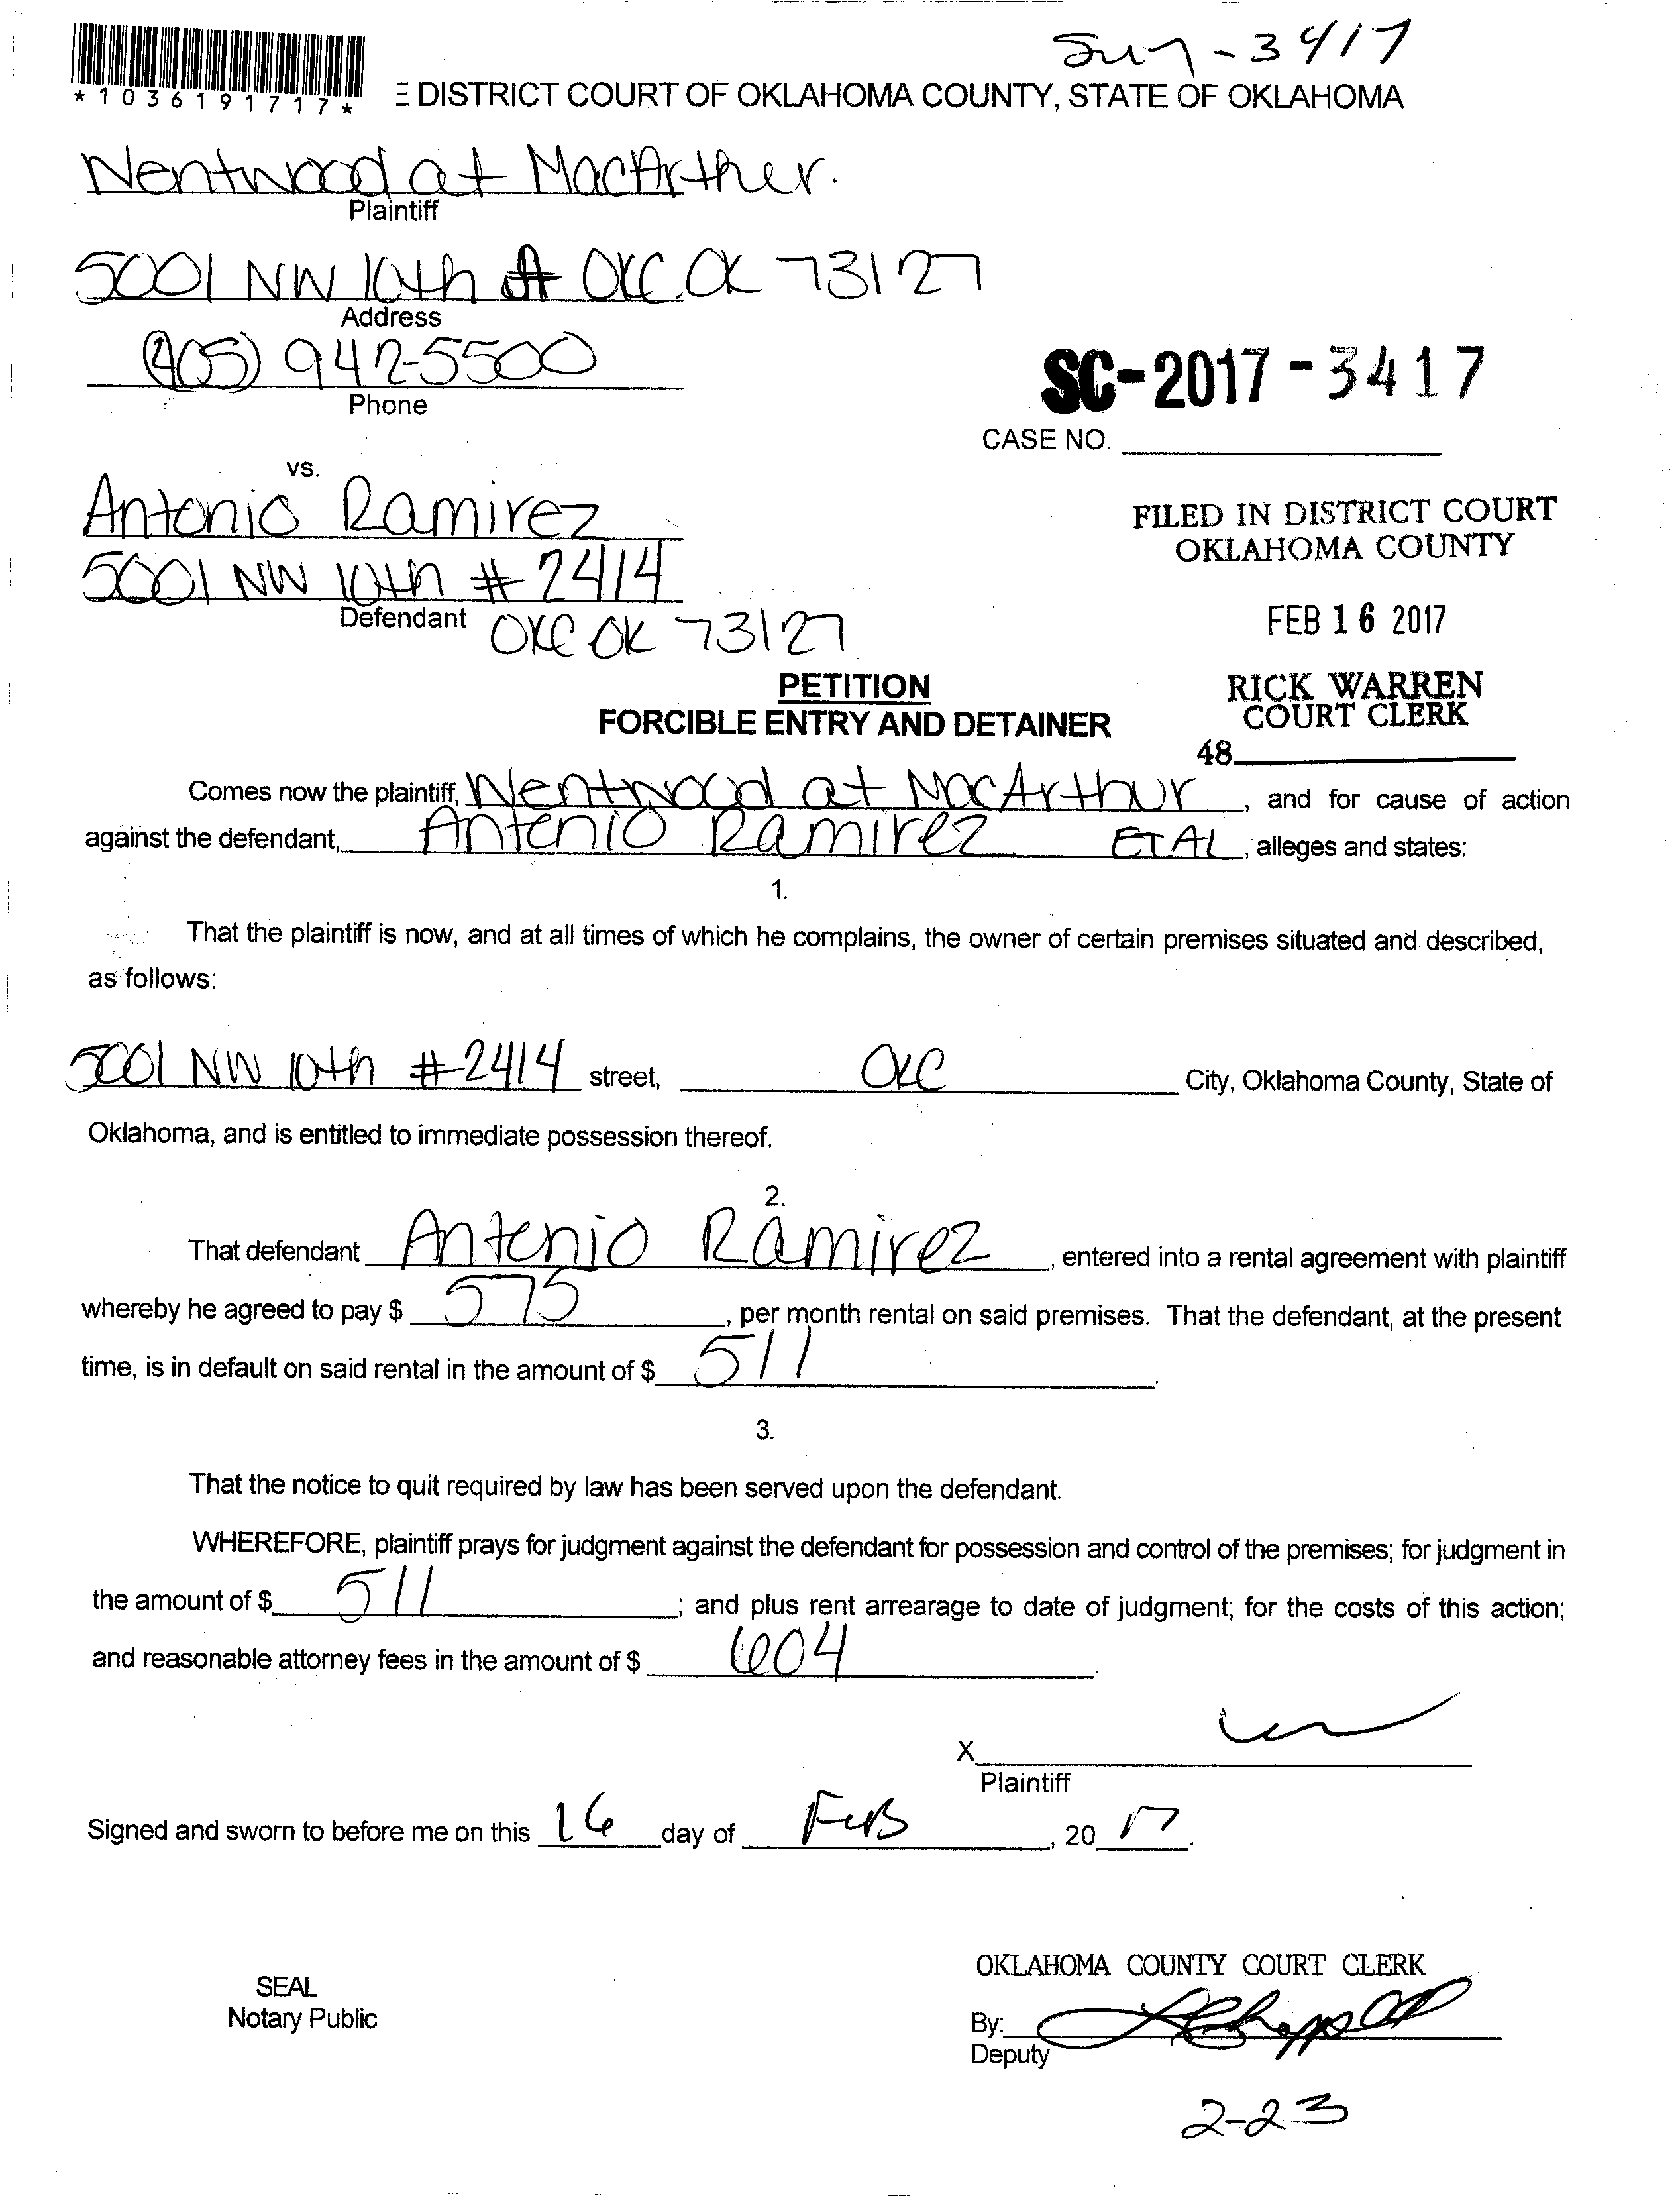 SC17-3417
*1036191717*
E DISTRICT COURT OF OKLAHOMA COUNTY, STATE OF OKLAHOMA
Wentwood at MacArther.
Plaintiff
5001 NW 10th OKC OK 73127
Address
(405) 942-5500
Phone
SC-2017-3417
CASE NO.
vs.
Antonio Ramirez
5001 NW 10th #2414
Defendant OKC OK 73127
FILED IN DISTRICT COURT
OKLAHOMA COUNTY
FEB 16 2017
RICK WARREN
COURT CLERK
48
PETITION
FORCIBLE ENTRY AND DETAINER
Comes now the plaintiff, Wentwood at MacArthur, and for cause of action
against the defendant, Antonio Ramirez ET AL, alleges and states:
1.
That the plaintiff is now, and at all times of which he complains, the owner of certain premises situated and described,
as follows:
5001 NW 10th #2414 street, OKC City, Oklahoma County, State of
Oklahoma, and is entitled to immediate possession thereof.
2.
That defendant Antonio Ramirez, entered into a rental agreement with plaintiff
whereby he agreed to pay $ 575, per month rental on said premises. That the defendant, at the present
time, is in default on said rental in the amount of $ 511.
3.
That the notice to quit required by law has been served upon the defendant.
WHEREFORE, plaintiff prays for judgment against the defendant for possession and control of the premises; for judgment in
the amount of $ 511; and plus rent arrearage to date of judgment; for the costs of this action;
and reasonable attorney fees in the amount of $ 604.
X
Plaintiff
Signed and sworn to before me on this 16 day of FEB, 20 17.
SEAL
Notary Public
OKLAHOMA COUNTY COURT CLERK
By:
Deputy
2-23